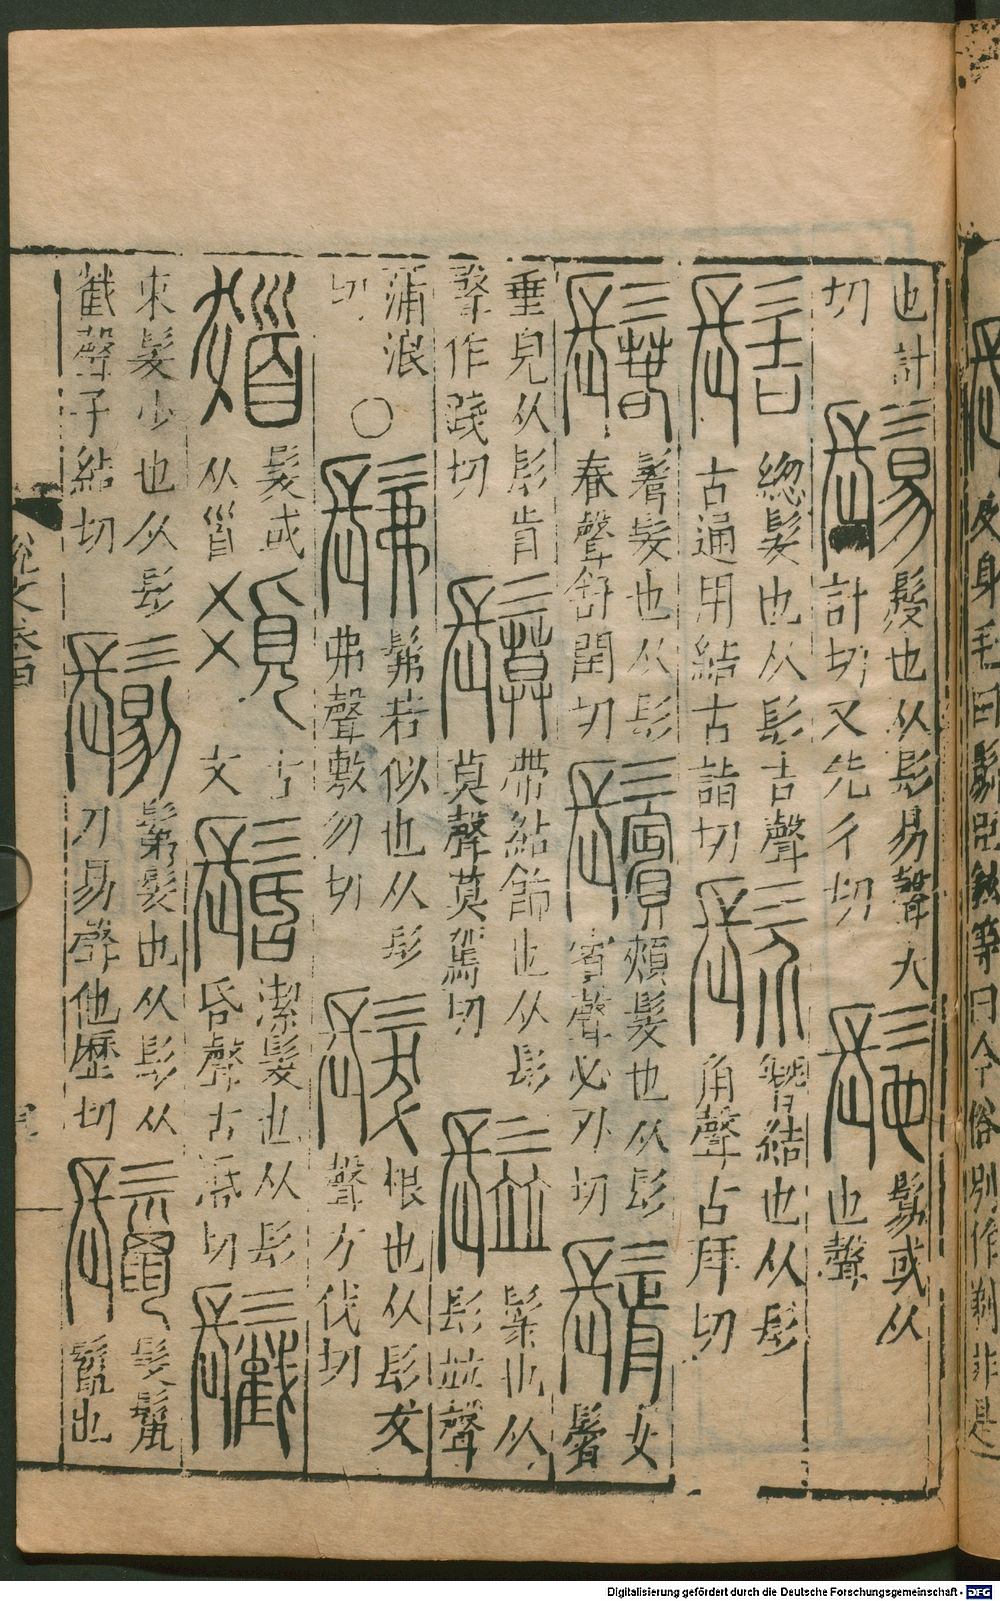 也計切 鬄 髲也从髟易聲大計切又先彳切 髢 鬄或从也聲
髻 總髮也从髟吉聲古通用結古詣切 髟介 簪結也从髟介聲古拜切
鬊 鬊髮也从髟春聲舒閏切 鬢 頰髮也从髟賓聲必刃切 鬋 女鬢
垂皃从髟前聲作踐切 髟莫 帶結飾也从髟莫聲莫駕切 髟並 鬆也从髟並聲
蒲浪切 ○ 髴 髴若似也从髟弗聲敷勿切 髮 根也从髟犮聲方伐切
髮或从𩠐 古文 髺 潔髮也从髟昏聲古活切 髟截
束髮少也从髟截聲子結切 鬄 鬀髮也从髟从刀易聲他歷切 鬣 髮鬣鬣也
說文卷
今俗別作剃非是
Digitalisierung gefördert durch die Deutsche Forschungsgemeinschaft - DFG